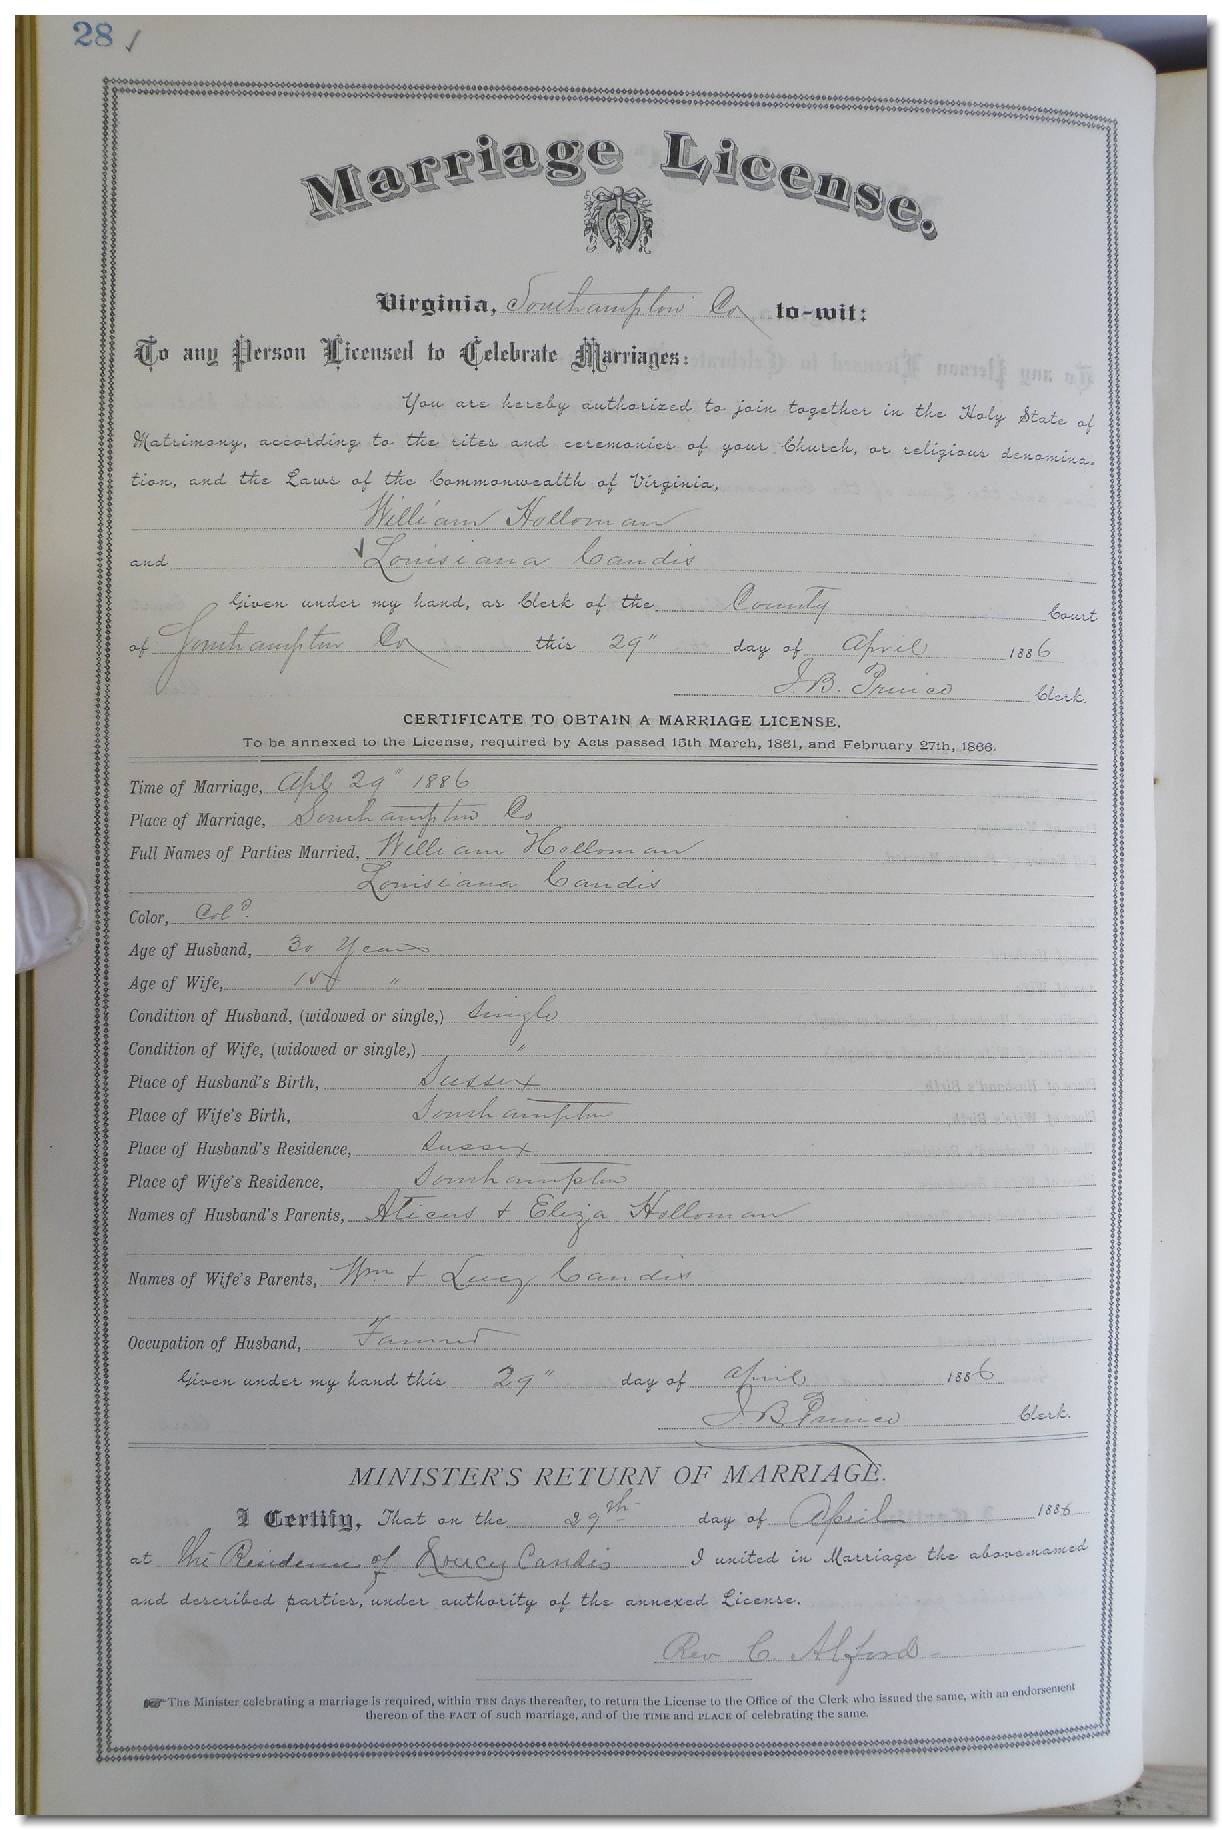 28 ✓
Marriage License.
Virginia, Southampton Co to-wit:
To any Person Licensed to Celebrate Marriages:
You are hereby authorized to join together in the Holy State of
Matrimony, according to the rites and ceremonies of your Church, or religious denomina-
tion, and the Laws of the Commonwealth of Virginia,
William Holloman
and ✓ Louisiana Candis
Given under my hand, as Clerk of the County Court
of Southampton Co this 29" day of April 1886
J. B. Prince Clerk.
CERTIFICATE TO OBTAIN A MARRIAGE LICENSE.
To be annexed to the License, required by Acts passed 15th March, 1861, and February 27th, 1866.
Time of Marriage, Apl 29" 1886
Place of Marriage, Southampton Co
Full Names of Parties Married, William Holloman
Louisiana Candis
Color, Cold.
Age of Husband, 30 Years
Age of Wife, "
Condition of Husband, (widowed or single,) Single
Condition of Wife, (widowed or single,) "
Place of Husband's Birth, Sussex
Place of Wife's Birth, Southampton
Place of Husband's Residence, Sussex
Place of Wife's Residence, Southampton
Names of Husband's Parents, Aticus + Eliza Holloman
Names of Wife's Parents, Wm + Lucy Candis
Occupation of Husband, Farmer
Given under my hand this 29" day of April 1886
J. B. Prince Clerk.
MINISTER'S RETURN OF MARRIAGE.
I Certify, That on the 29th day of April 1886
at the Residence of Candis I united in Marriage the above named
and described parties, under authority of the annexed License.
Rev C. Alford
The Minister celebrating a marriage is required, within TEN days thereafter, to return the License to the Office of the Clerk who issued the same, with an endorsement
thereon of the FACT of such marriage, and of the TIME and PLACE of celebrating the same.